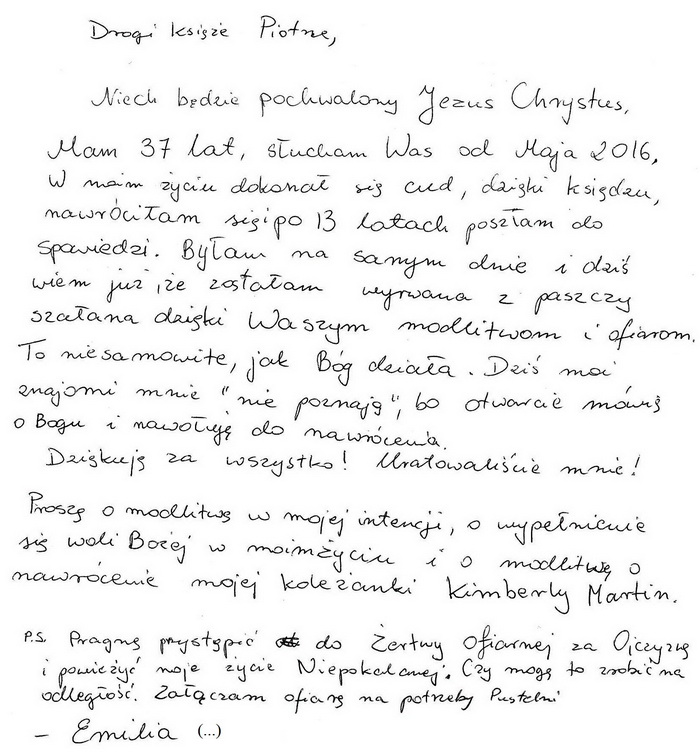 Drogi księże Piotrze,
Niech będzie pochwalony Jezus Chrystus,
Mam 37 lat, słucham Was od Maja 2016,
W moim życiu dokonał się cud, dzięki księdzu,
nawróciłam się i po 13 latach poszłam do
spowiedzi. Byłam na samym dnie i dziś
wiem już, że zostałam wyrwana z paszczy
szatana dzięki Waszym modlitwom i ofiarom.
To niesamowite, jak Bóg działa. Dziś moi
znajomi mnie "nie poznają", bo otwarcie mówię
o Bogu i nawołuję do nawrócenia.
Dziękuję za wszystko! Uratowaliście mnie!
Proszę o modlitwę w mojej intencji, o wypełnienie
się woli Bożej w moim życiu i o modlitwę o
nawrócenie mojej koleżanki Kimberly Martin.
P.S. Pragnę przystąpić do Żertwy Ofiarnej za Ojczyznę
i powierzyć moje życie Niepokalanej. Czy mogę to zrobić na
odległość. Załączam ofiarę na potrzeby Pustelni
– Emilia (...)